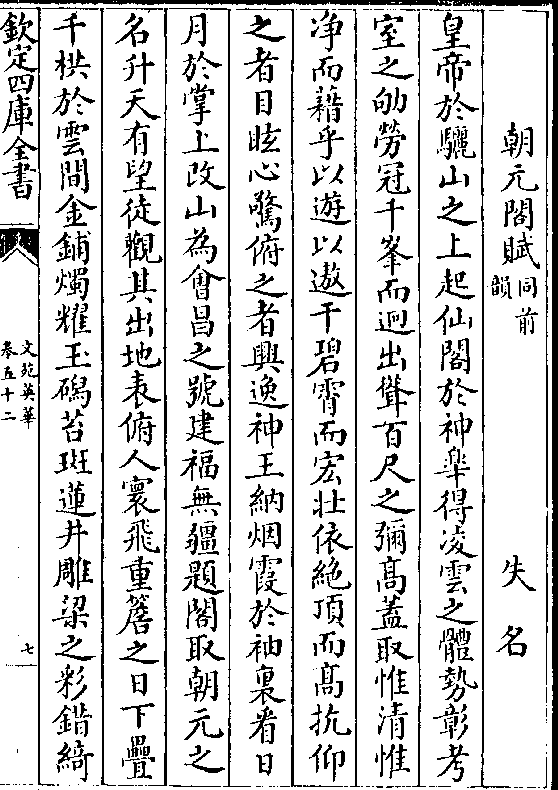 朝元閣賦同前韻 失名
皇帝於驪山之上起仙閣於神臯得凌雲之體勢彰考
室之劬勞冠千峯而迥出聳百尺之彌髙葢取惟清惟
净而藉乎以遊以遨干碧霄而宏壯依絶頂而髙抗仰
之者目眩心驚俯之者興逸神王納烟霞於袖裏看日
月於掌上改山為會昌之號建福無疆題閣取朝元之
名升天有望徒觀其出地表俯人寰飛重簷之日下疊
千栱於雲間金鋪燭耀玉磶苔斑蓮井雕梁之彩錯綺
欽定四庫全書
文苑英華
卷五十二
七